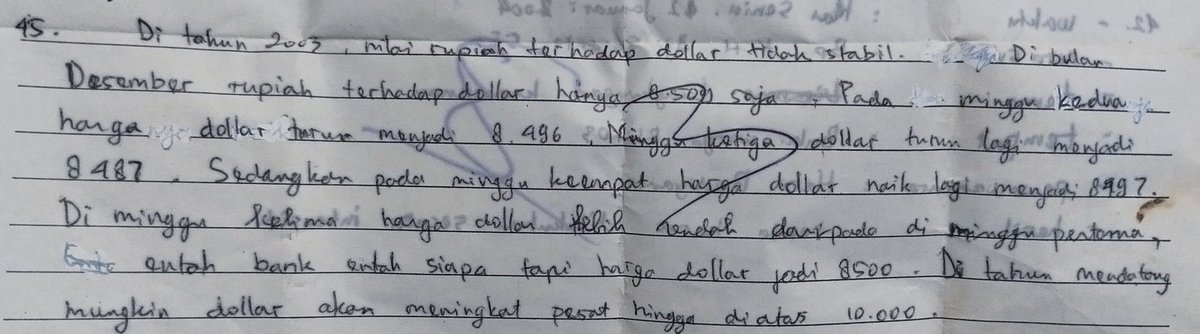 45. Di tahun 2003, nilai rupiah terhadap dollar tidak stabil. Di bulan
Desember rupiah terhadap dollar hanya 8.509 saja, Pada minggu kedua
harga dollar turun menjadi 8.496. Minggu ketiga dollar turun lagi menjadi
8487. Sedangkan pada minggu keempat harga dollar naik lagi menjadi 8497.
Di minggu kelima harga dollar lebih rendah daripada di minggu pertama,
entah bank entah siapa tapi harga dollar jadi 8500. Di tahun mendatang
mungkin dollar akan meningkat pesat hingga diatas 10.000.